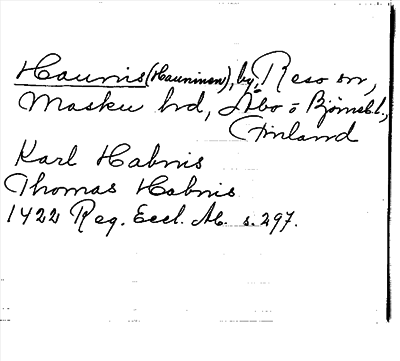 Haunis (Hauninen), by, Reso sn,
Masku hd, Åbo o Björneb. l.,
Finland
Karl Habnis
Thomas Habnis
1422 Reg. Eccl. Ab. s. 297.